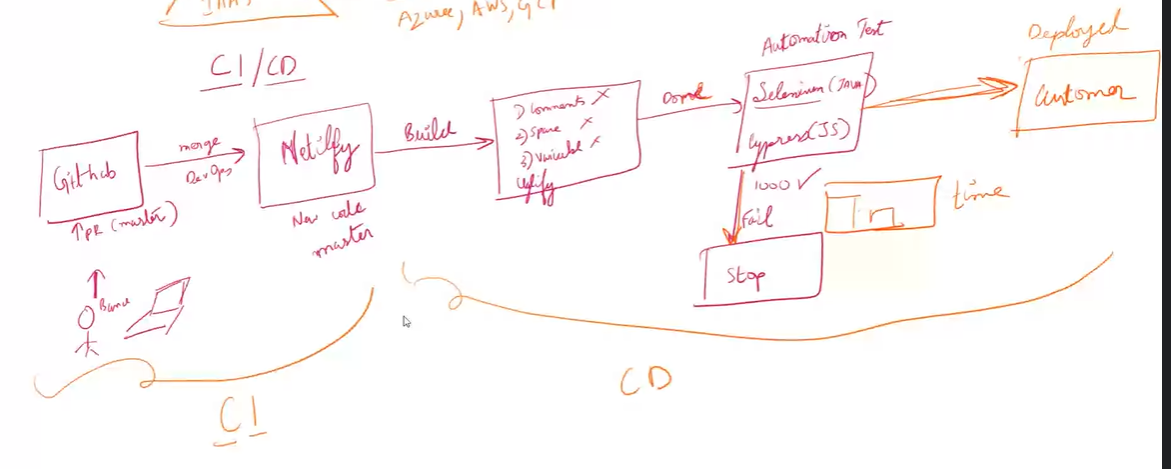 Azure, AWS, GCP
CI/CD
GitHub
merge
DevOps
↑PR (master)
Netlify
New code
master
Build
1) Comments X
2) Space X
3) Variable X
Uglify
Done
Automation Test
Selenium (JAVA)
Cypress (JS)
1000 ✓
Fail
Stop
time
Deployed
Customer
CI
CD